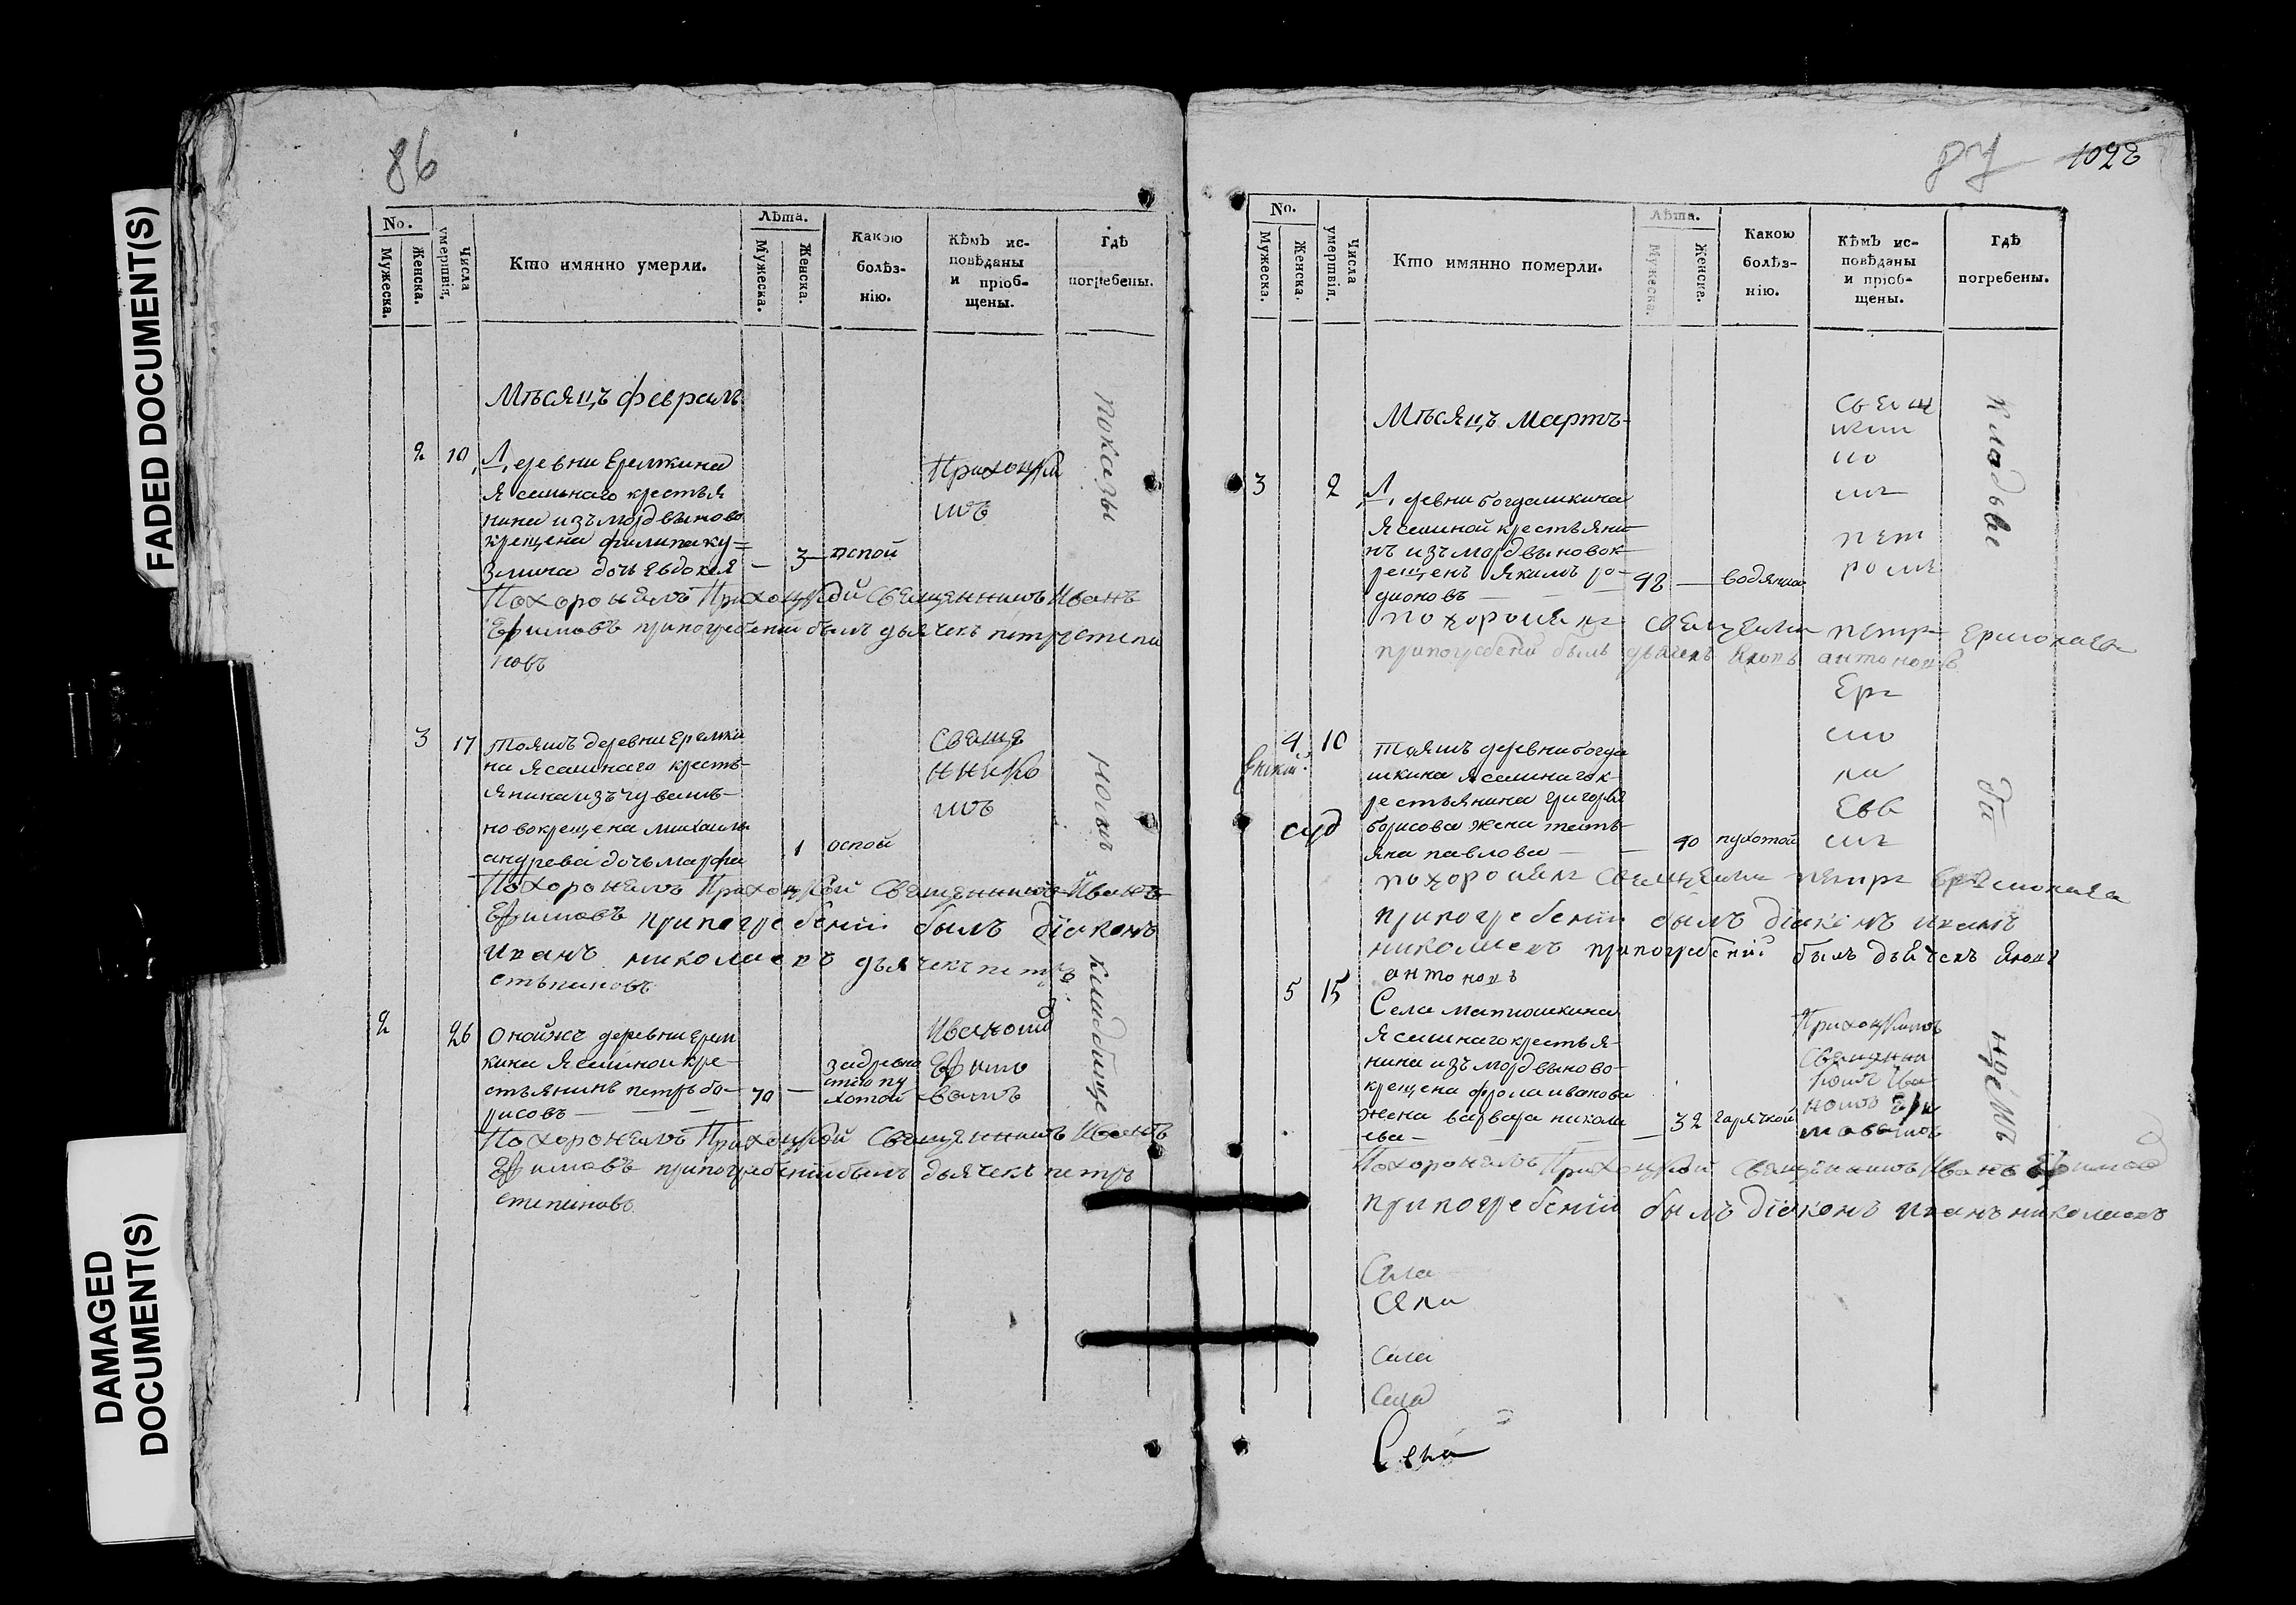 FADED DOCUMENT(S)
DAMAGED
DOCUMENT(S)
86
No.
Мужеска.
Женска.
Числа умертвія.
Кто имянно умерли.
Лѣта.
Мужеска.
Женска.
Какою болѣз-
нію.
Кѣмъ ис-
повѣданы
и пріоб-
щены.
гдѣ
погребены.
Мѣсяцъ февраль
2 10 Деревни Еремкина
ясашнаго крестья
нина изъ мордвы ново
крещена филипа ку=
змина дочь Евдокея — 3 — оспой
Приходскимъ
Похоронилъ Приходской Священникъ Иванъ
Ефимовъ припогребении былъ дьячекъ петръ степа
новъ
показы
3 17 тояжъ деревни Еремки
на ясашнаго кресть-
янина изъ чувашъ-
новокрещена михаила
андреева дочь марфа 1 оспой
Свяще
ннико
мъ
Похоронилъ Приходской Священникъ Иванъ
Ефимовъ припогребении былъ діаконъ
Иванъ николаевъ дьячекъ петръ
степановъ
номъ
2 26 онойже деревни Ерем
кина ясашной кре-
стьянинъ петръ бо-
рисовъ — — — 70 —
задревно
стію пу
хотой
Иваномъ
Ефимо
вымъ
Похоронилъ Приходской Священникъ Иванъ
Ефимовъ припогребении былъ дьячекъ петръ
степановъ
кладбище
87 1022
No.
Мужеска.
Женска.
Числа умертвія.
Кто имянно померли.
Лѣта.
Мужеска.
Женска.
Какою
болѣз-
нію.
Кѣмъ ис-
повѣданы
и пріоб-
щены.
гдѣ
погребены.
Мѣсяцъ Мартъ
3 2 Деревни богдашкина
ясашной крестьяни-
нъ изъ мордвы новок-
рещенъ якимъ ро-
дионовъ — 42 — водяная
пет
ромъ
похоронилъ священникъ петръ Ермолаевъ
припогребении былъ дьячекъ яковъ антоновъ
кладьбе
4 10 тояжъ деревни богда
шкина ясашнаго к-
рестьянина григорья
борисова жена тать-
яна павлова — — 40 пухотой
Ер
мо
ла
Евы
мъ
суд
похоронилъ священникъ петръ Ермолаевъ
припогребении былъ діаконъ иванъ
николаевъ припогребении былъ дьячекъ яковъ
антоновъ
5 15 Села матюшкина
ясашнаго крестья-
нина изъ мордвы ново-
крещена фрола иванова
жена варвара никола
ева — — 32 гарячкой
Приходскимъ
Священни
комъ Ива
номъ Ефи
мовымъ
Похоронилъ Приходской Священникъ Иванъ Ефимовъ
припогребении былъ діаконъ иванъ николаевъ
Села
Села
Села